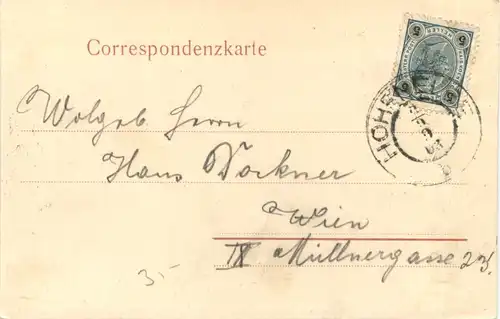 Correspondenzkarte
Wolgeb. Herrn
Hans Dockner
Wien
IX Müllnergasse 23.
3.-
5 5
HOHE